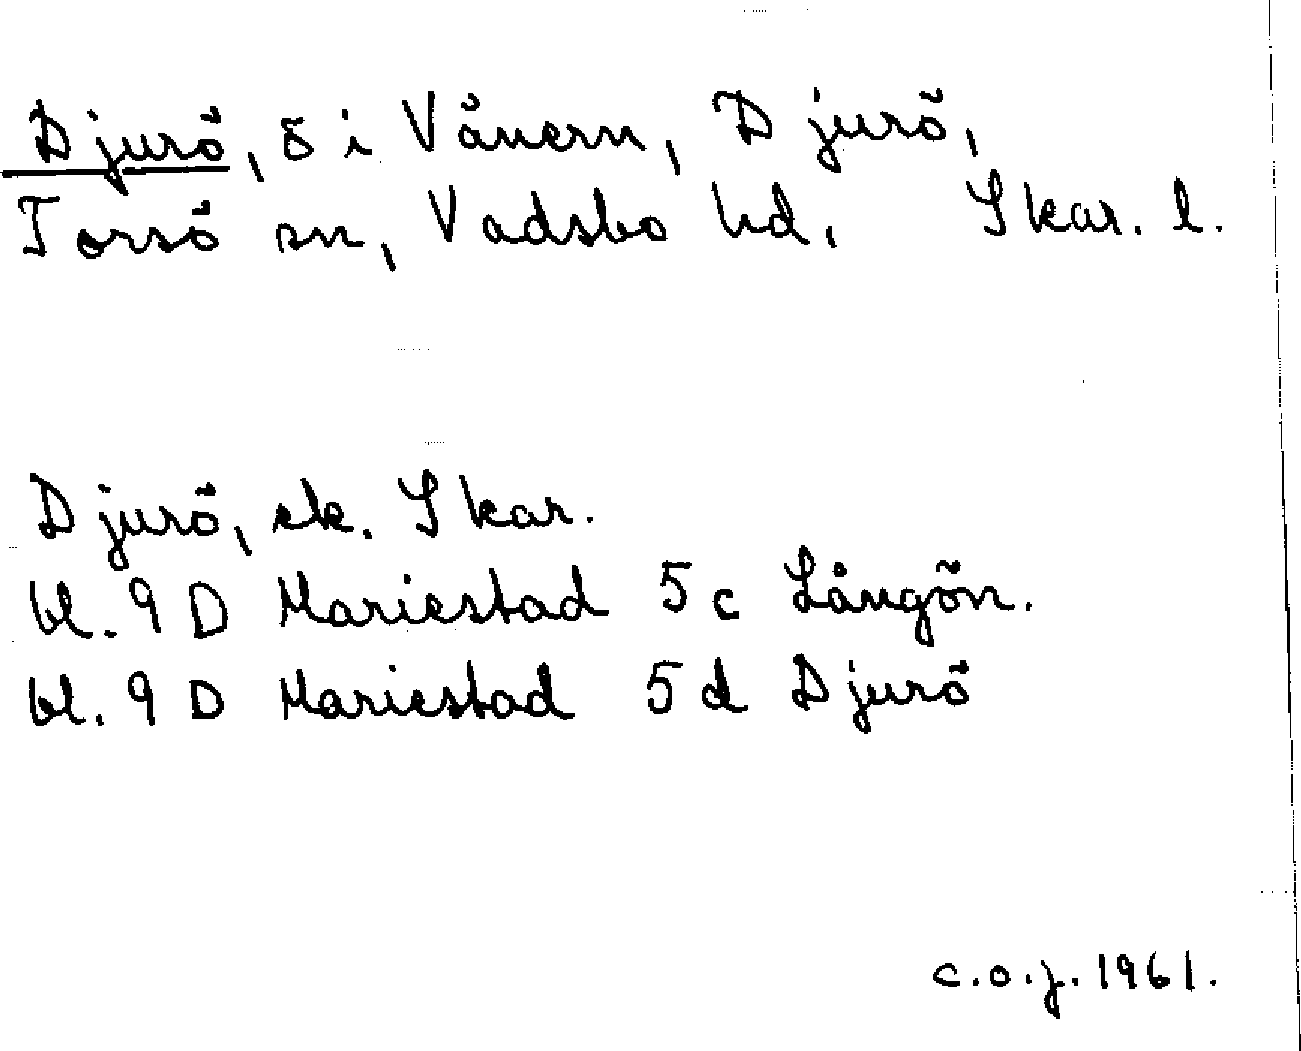 Djurö, ö i Vänern, Djurö,
Torsö sn, Vadsbo hd, Skar. l.
Djurö, ek. Skar.
bl. 9 D Mariestad 5 c Långön.
bl. 9 D Mariestad 5 d Djurö
c.o.j. 1961.